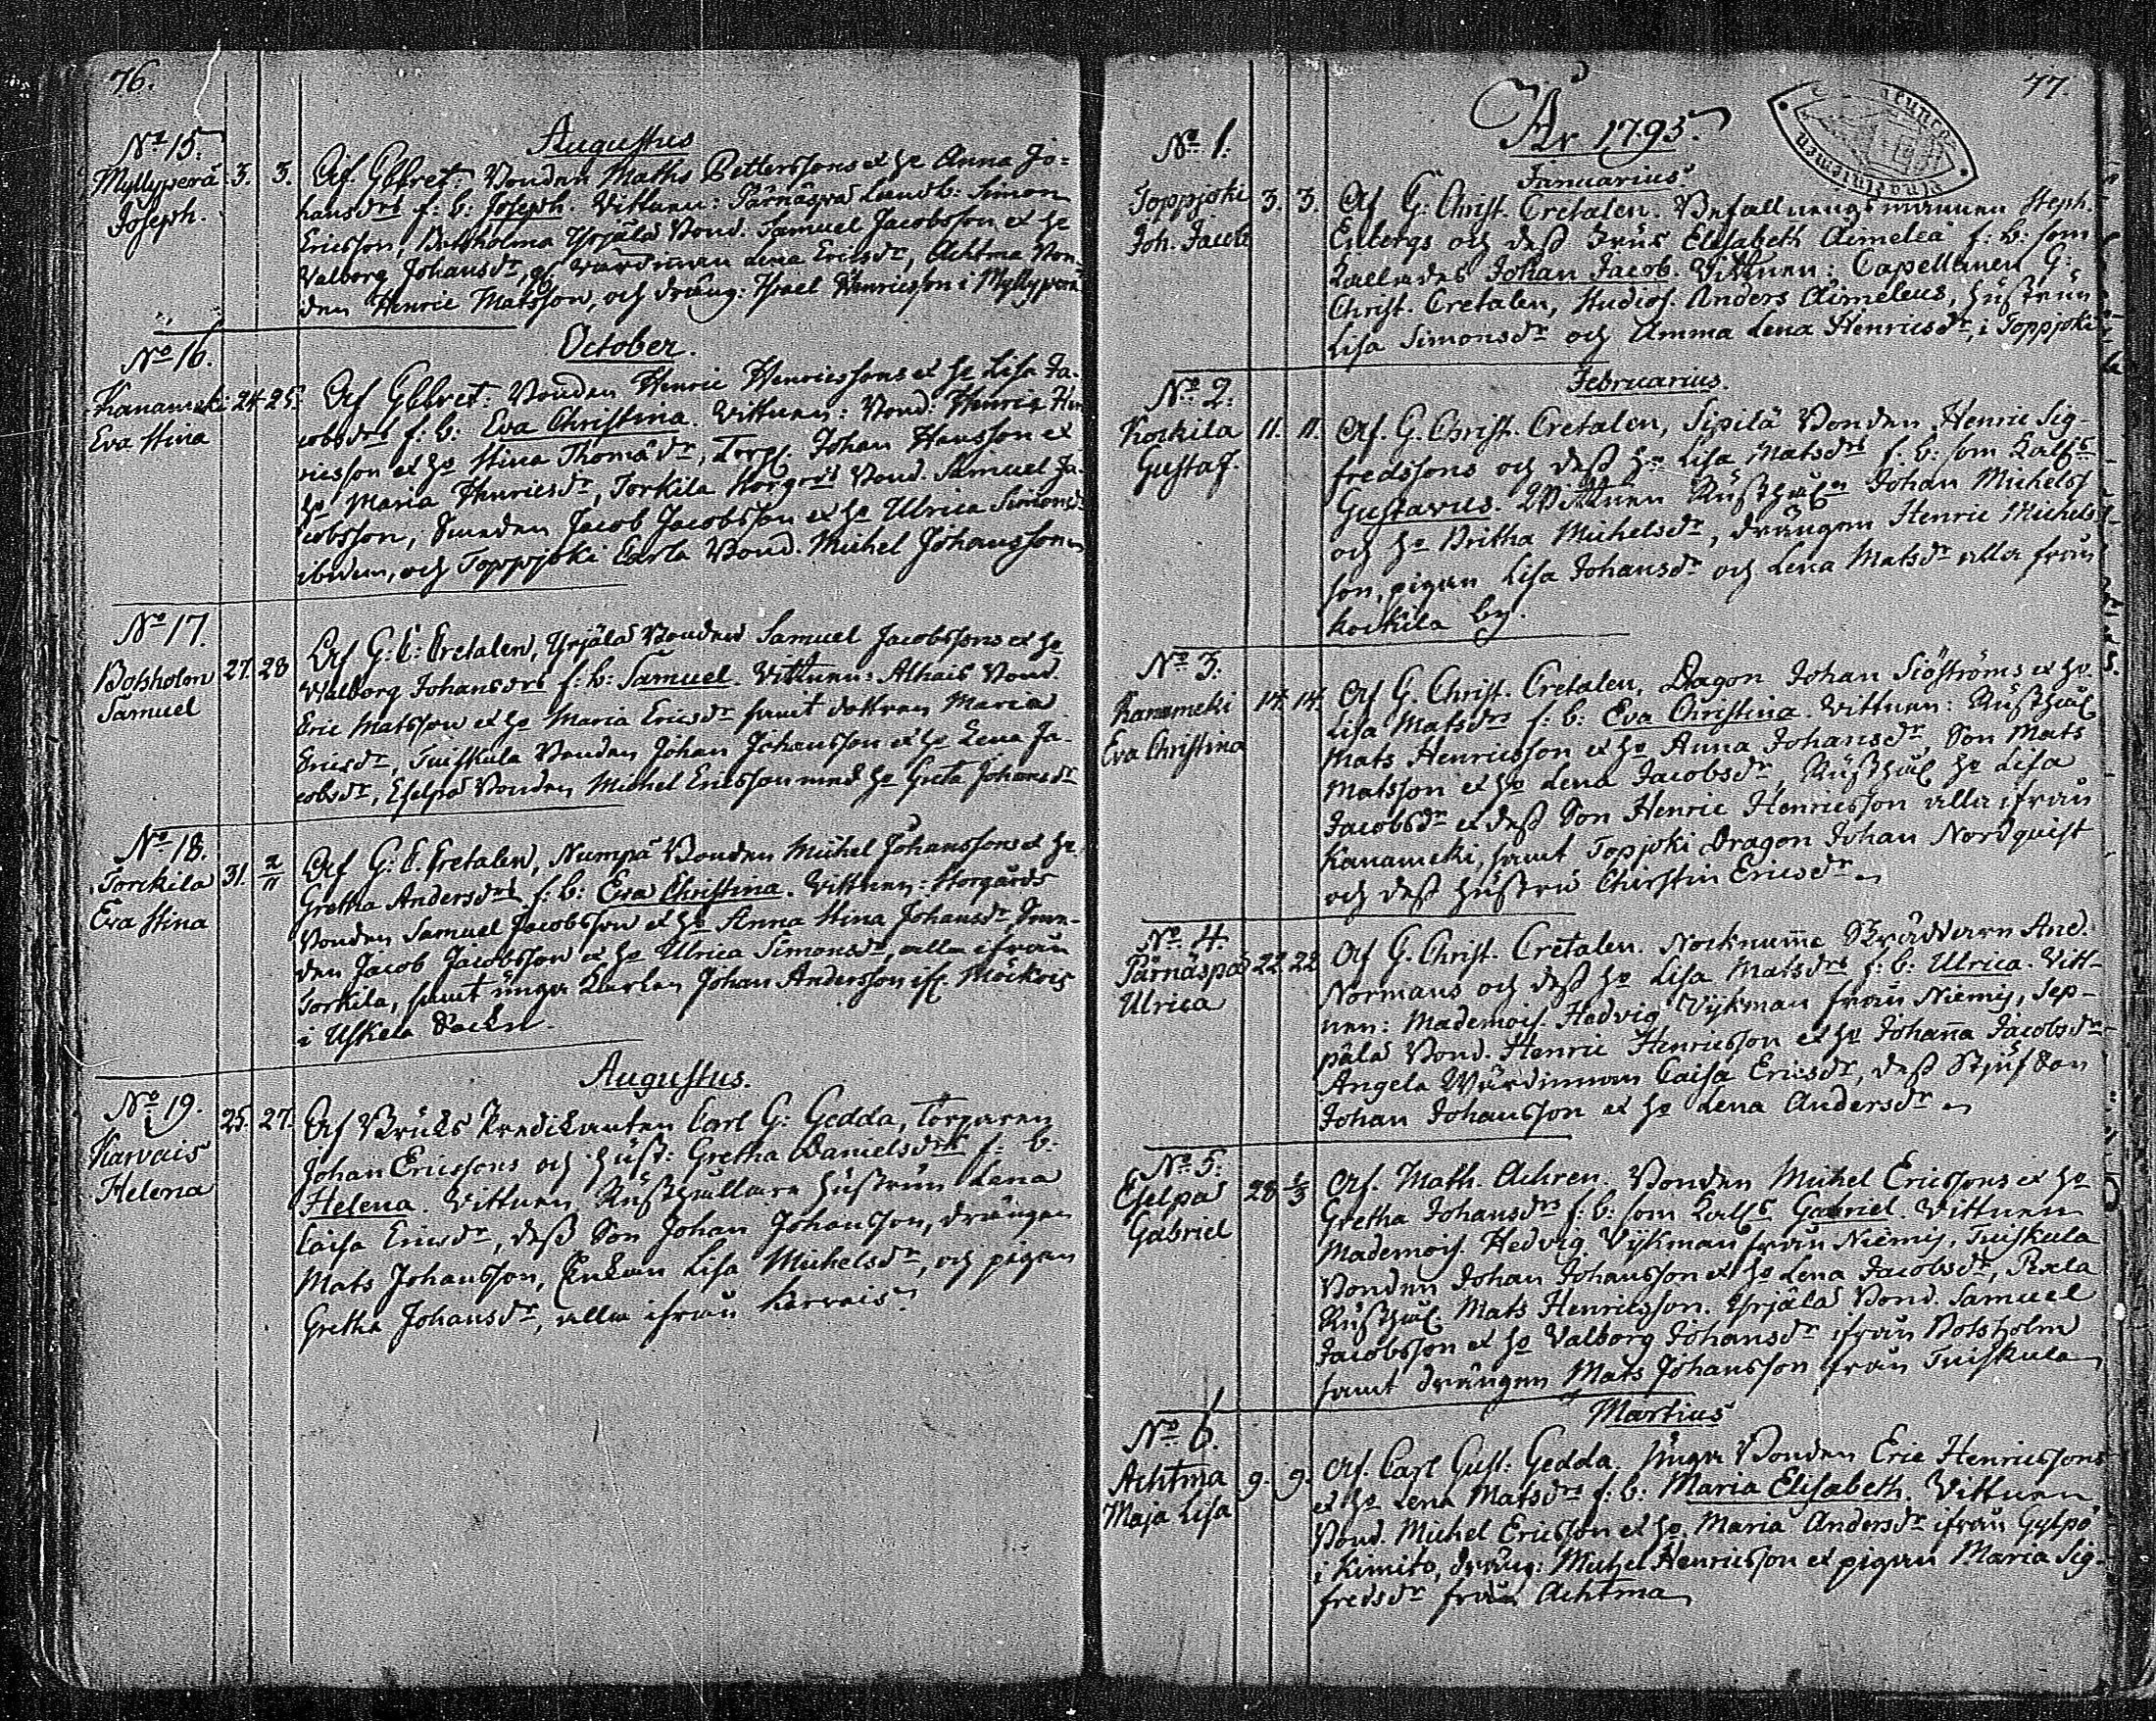 76.
Augustus
No 15.
Myllyperä 3. 3. Af Gbbret: Bonden Maths Petterssons et ho Anna Jo=
Joseph. hansdrs f: b: Joseph. Vittnen: Pärnäspä Landb: Simon
Ericsson, Botsholma Yrjälä Bond: Samuel Jacobsson et ho
Valborg Johansdr, Värdinnan Lena Ericsdr, Achtma Bon-
den Henric Matsson, och dräng: Israel Henricsson i Myllyperä
October.
No 16.
Kanameki 24. 25. Af Gbbret: Bonden Henric Henricssons et ho Lisa Ja-
Eva Stina cobsdrs f: b: Eva Christina. Vittnen: Bond: Henric Hen
ricsson et ho Stina Thomädr, Torp: Johan Hansson et
ho Maria Henricsdr, Torkila Storgrds Bond. Samuel Ja-
cobsson, Smeden Jacob Jacobsson et ho Ulrica Simonsdr
ibidem, och Toppjoki Carla Bond. Michel Johansson
No 17.
Botsholm 27. 28 Af G: C: Cretalen, Yrjälä Bonden Samuel Jacobssons et ho
Samuel Valborg Johansdrs f: b: Samuel. Vittnen: Alhais Bond.
Eric Matsson et ho Maria Ericsdr samt dottren Maria
Ericsdr, Tuiskula Bonden Johan Johansson et ho Lena Ja-
cobsdr, Eselpä Bonden Michel Ericsson med ho Greta Johansdr
No 18.
Torckila 31. 2/11 Af G: C. Cretalen, Numpä Bonden Michel Johanssons et ho
Eva Stina Gretha Andersdrs f: b: Eva Christina. Vittnen: Storgårds
Bonden Samuel Jacobsson et ho Anna Stina Johansdr, Sme-
den Jacob Jacobsson et ho Ulrica Simonsdr, alla ifrån
Torkila, samt unga Karlen Johan Andersson if. Möckois
i Uskela Sockn.
Augustus.
No 19.
Karvais 25. 27. Af Bruks Predikanten Carl G: Gedda, Torparen
Helena Johan Ericssons och hust: Gretha Danielsdrs f: b:
Helena. Vittnen Rusthållare hustrun Lena
Caisa Ericsdr, dess Son Johan Johansson, drängen
Mats Johansson, Enkan Lisa Michelsdr, och pigan
Gretha Johansdr, alla ifrån Karvais.
77.
År 1795.
Januarius.
No 1.
Toppjoki 3. 3. Af G: Christ. Cretalen. Befallningsmannen Steph.
Joh. Jacob Enbergs och dess Frus Elisabeth Aimelea f: b: som
kallades Johan Jacob. Vittnen: Capellanen G:
Christ. Cretalen, Studios. Anders Aimeleus, hustrun
Lisa Simonsdr och Amma Lena Henricsdr, i Toppjoki
Februarius.
No 2.
Kockila 11. 11. Af. G. Christ. Cretalen, Sipilä Bonden Henric Sig-
Gustaf. fredssons och dess ho Lisa Matsdrs f: b: som kalls
Gustavus. Vittnen Rusthåln Johan Michelss
och ho Britha Michelsdr, drängen Henric Michels
son, pigan Lisa Johansdr och Lena Matsdr alla från
Kockila by.
No 3.
Kanameki 14. 14. Af G. Christ. Cretalen, Dragon Johan Siöströms et ho
Eva Christina Lisa Matsdrs f: b: Eva Christina. Vittnen: Rusthål
Mats Henricsson et ho Anna Johansdr, Son Mats
Matsson et ho Lena Jacobsdr, Rusthål ho Lisa
Jacobsdr et dess Son Henric Henricsson alla ifrån
Kanameki, samt Topjoki Dragon Johan Nordquist
och dess hustru Chirstin Ericsdr
No 4.
Pärnäspä 22. 22 Af G. Christ. Cretalen. Nocknumme Skräddarn And.
Ulrica Normans och dess ho Lisa Matsdrs f: b: Ulrica. Vitt-
nen: Mademois. Hedvig Vijkman från Niemis, Sep-
pälä Bond. Henric Henricsson et ho Johanna Jacobsdr
Angela Wärdinnan Caisa Ericsdr, dess Stjufson
Johan Johansson et ho Lena Andersdr
No 5.
Eselpä 28 1/3 Af. Math. Achren. Bonden Michel Ericssons et ho
Gabriel Gretha Johansdrs f: b: som kalls Gabriel. Vittnen
Mademois. Hedvig Vijkman från Niemis, Tuiskula
Bonden Johan Johansson et ho Lena Jacobsdr, Rxla
Rusthål. Mats Henricsson. Yrjälä Bond. Samuel
Jacobsson et ho Valborg Johansdr ifrån Botsholm
samt drängen Mats Johansson från Tuiskula
Martius
No 6.
Achtma 9. 9. Af. Carl Gust: Gedda. Unga Bonden Eric Henricssons
Maja Lisa et ho Lena Matsdrs f: b: Maria Elisabeth. Vittnen
Bond. Michel Ericsson et ho Maria Andersdr ifrån Gylpö
i Kimito, dräng: Michel Henricsson et pigan Maria Sig-
fredsdr från Achtma